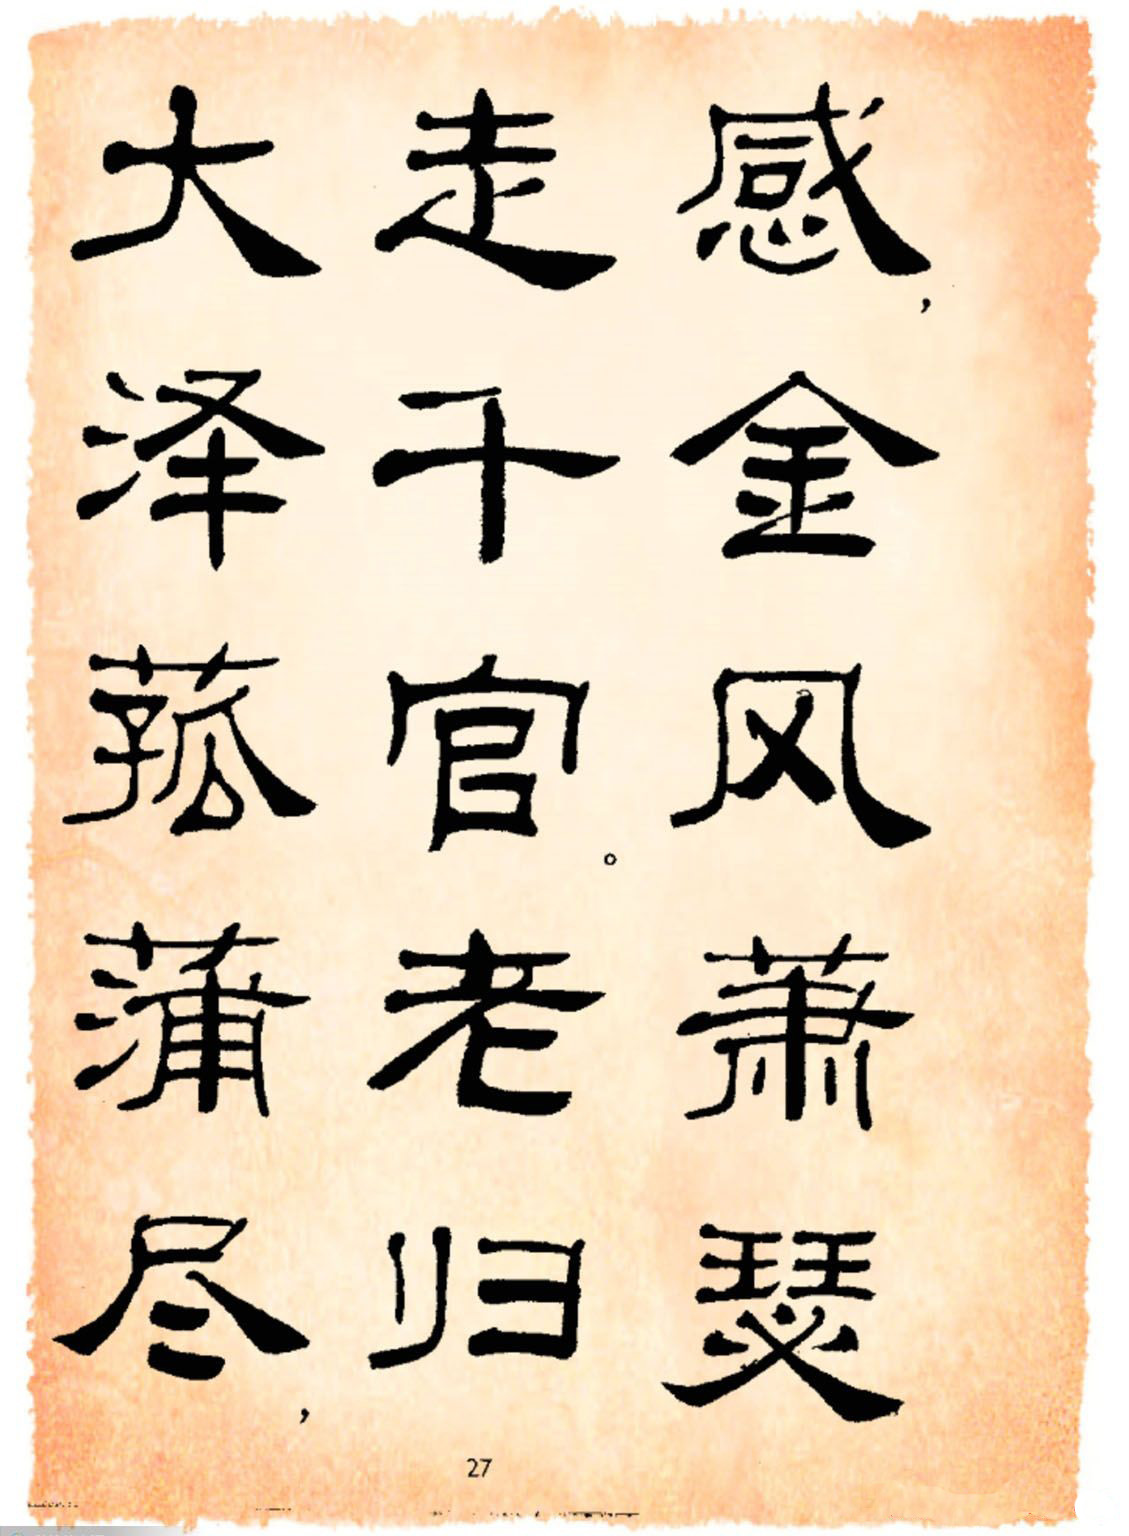 感，金风萧瑟
走千官。老归
大泽菰蒲尽，
27